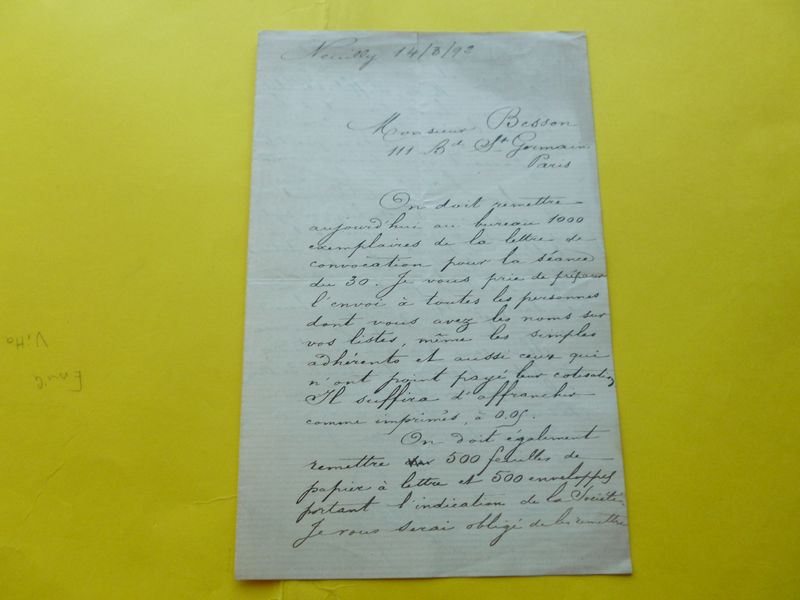 Neuilly 14/8/93
Monsieur Besson
111 Bd St Germain
Paris
On doit remettre
aujourd'hui au bureau 1000
exemplaires de la lettre de
convocation pour la séance
du 30. Je vous prie de préparer
l'envoi à toutes les personnes
dont vous avez les noms sur
vos listes, même les simples
adhérents et aussi ceux qui
n'ont point payé leur cotisation
Il suffira d'affranchir
comme imprimés, à 0.05.
On doit également
remettre 500 feuilles de
papier à lettre et 500 enveloppes
portant l'indication de la Société.
Je vous serai obligé de les remettre